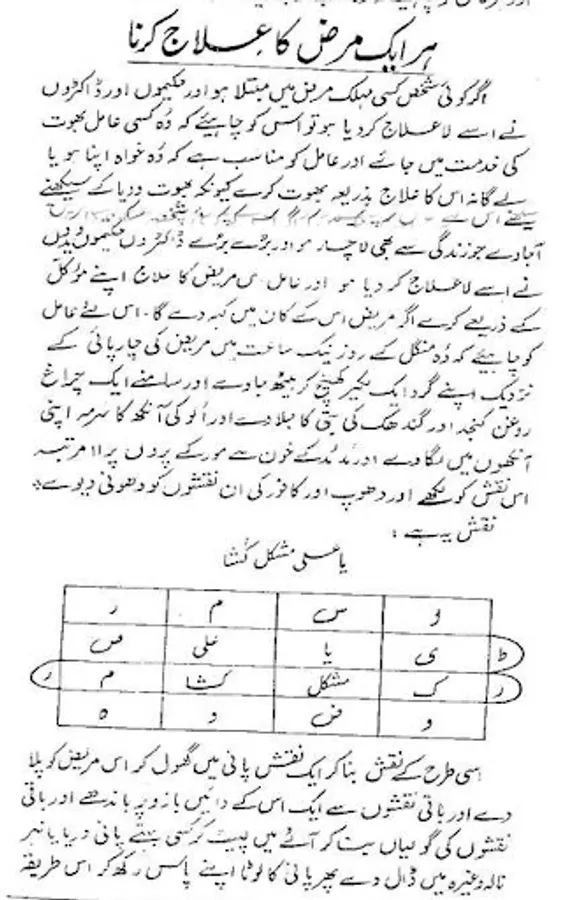 ہر ایک مرض کا عِلاج کرنا
اگر کوئی شخص کسی مہلک مرض میں مبتلا ہو اور حکیموں اور ڈاکٹروں
نے اسے لاعلاج کر دیا ہو تو اسس کو چاہیئے کہ وُہ کسی عامل بھوت
کی خدمت میں جائے اور عامل کو مناسب ہے کہ وُہ خواہ اپنا ہو یا
بےگانہ اس کا علاج بذریعہ بھوت کرے کیونکہ بھوت ودیا کے سیکھنے
سیکھنے اس سے
آجاوے جو زندگی سے بھی لاچار ہو اور بڑے بڑے ڈاکٹروں حکیموں ویدوں
نے اسے لاعلاج کر دیا ہو اور عامل مریض کا علاج اپنے مؤکل
کے ذریعے کرے اگر مریض اس کے کان میں کہہ دے گا۔ اس لئے عامل
کو چاہیئے کہ وُہ منگل کے روز نیک ساعت میں مریض کی چارپائی کے
نزدیک اپنے گرد ایک لکیر کھینچ کر بیٹھ جاوے اور سامنے ایک چراغ
روغن کنجد اور گندھک کی بتی کا جلاوے اور اُلو کی آنکھ کا سرمہ اپنی
آنکھوں میں لگاوے اور ہُدہُد کے خون سے مور کے پروں پر اا مرتبہ
اس نقش کو لکھے اور دھوپ اور کافور کی ان نقشوں کو دھونی دیوے؛
نقش یہ ہے :
یا علی مشکل کُشا
و س م ر
ط ی یا علی ص
ر ک مشکل کشا م ر
و ض د ہ
اسی طرح کے نقش بنا کر ایک نقش پانی میں گھول کر اس مریض کو پلا
دے اور باقی نقشوں سے ایک اس کے دائیں بازو پر باندھے اور باقی
نقشوں کی گولیاں بنا کر آٹے میں لپیٹ کر کسی بہتے پانی دریا یا نہر
نالہ وغیرہ میں ڈال دے پھر پانی کا لوٹا اپنے پاس رکھ کر اس طریقہ